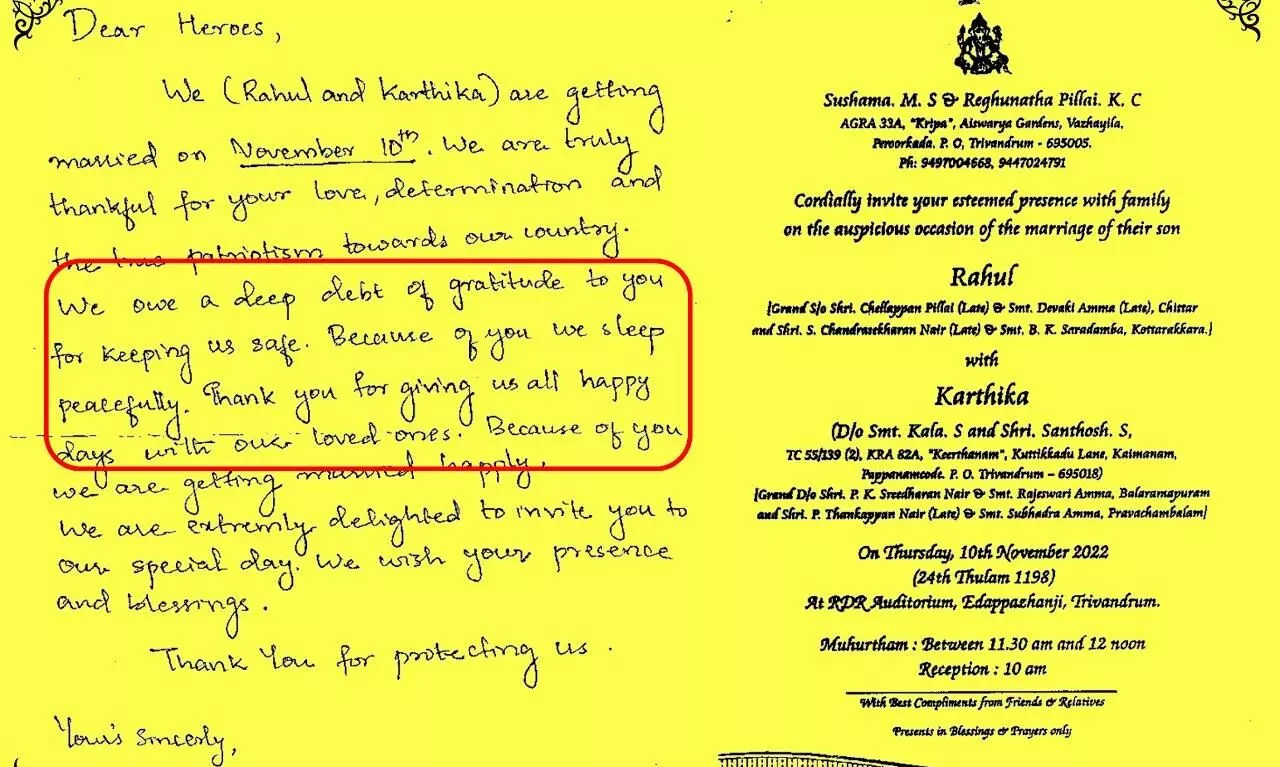 Dear Heroes,
We (Rahul and Karthika) are getting
married on November 10th. We are truly
thankful for your love, determination and
the true patriotism towards our country.
We owe a deep debt of gratitude to you
for keeping us safe. Because of you we sleep
peacefully. Thank you for giving us all happy
days with our loved ones. Because of you
we are getting married happily.
We are extremly delighted to invite you to
our special day. We wish your presence
and blessings.
Thank You for protecting us.
Your's Sincerly,
Sushama. M. S & Reghunatha Pillai. K. C
AGRA 33A, "Kripa", Aiswarya Gardens, Vazhayila,
Peroorkada. P. O, Trivandrum - 695005.
Ph: 9497004668, 9447024791
Cordially invite your esteemed presence with family
on the auspicious occasion of the marriage of their son
Rahul
[Grand S/o Shri. Chellappan Pillai (Late) & Smt. Devaki Amma (Late), Chittar
and Shri. S. Chandrasekharan Nair (Late) & Smt. B. K. Saradamba, Kottarakkara.]
with
Karthika
(D/o Smt. Kala. S and Shri. Santhosh. S,
TC 55/139 (2), KRA 82A, "Keerthanam", Kuttikkadu Lane, Kaimanam,
Pappanamcode. P. O. Trivandrum – 695018)
[Grand D/o Shri. P. K. Sreedharan Nair & Smt. Rajeswari Amma, Balaramapuram
and Shri. P. Thankappan Nair (Late) & Smt. Subhadra Amma, Pravachambalam]
On Thursday, 10th November 2022
(24th Thulam 1198)
At RDR Auditorium, Edappazhanji, Trivandrum.
Muhurtham : Between 11.30 am and 12 noon
Reception : 10 am
With Best Compliments from Friends & Relatives
Presents in Blessings & Prayers only